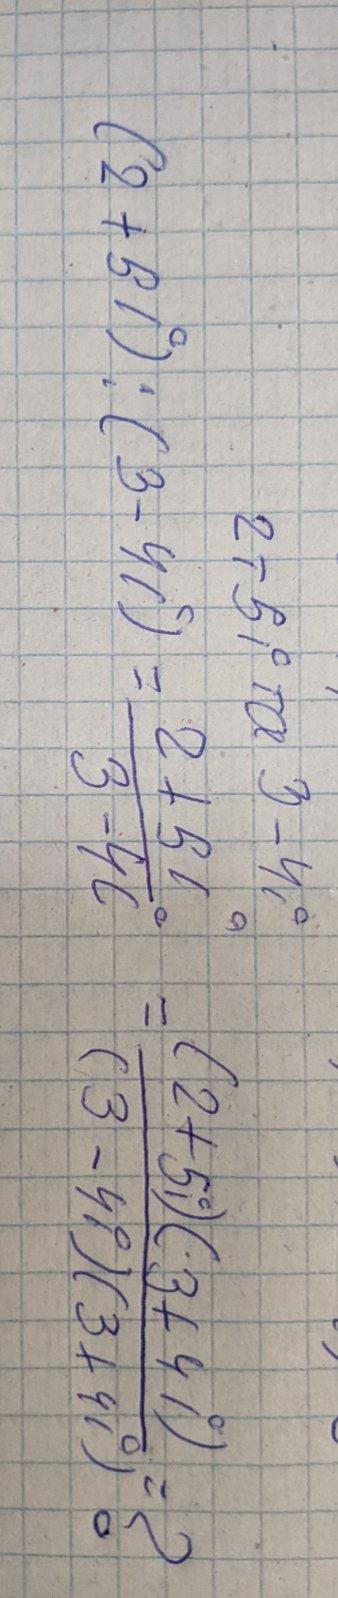 2+5i та 3-4i
(2+5i):(3-4i) = \frac{2+5i}{3-4i} = \frac{(2+5i)(3+4i)}{(3-4i)(3+4i)} = ?